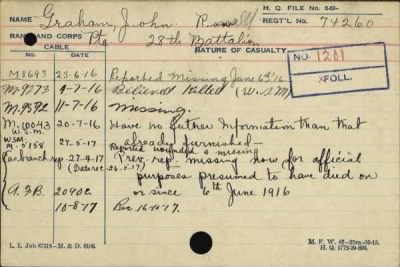 H. Q. FILE No. 649-
NAME Graham, John Rowell REGT'L No. 74260
RANK AND CORPS Pte 28th Battalion
CABLE
NO. DATE NATURE OF CASUALTY
NO. 1201
FOLL.
M8693 23-6-16 Reported Missing June 6th/16
M9773 4-7-16 Believed Killed (W.S.M)
M.9392 11-7-16 Missing.
M.10043 20-7-16 Have no futher Information than that
W.S.M.
already furnished-
WSM. M.5158 27-5-17 Reported wounded & missing
Casbranch rep. 27-4-17 Prev. rep. missing now for official
(Date rec 26-5-17) purposes presumed to have died on
A.F.B. 2090a or since 6th June 1916
10-8-17 Rec 16-11-17.
L. L. Job 87213-M. & D. 6106.
M. F. W. 42-25m.-10-15.
H. Q. 1772-39-893.